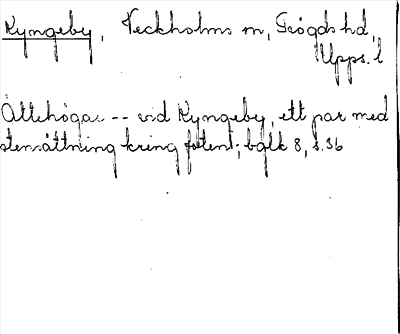 Kyngeby, Veckholms sn, Trögds hd,
Upps. l
Ättehögar -- vid Kyngeby, ett par med
stensättning kring foten; bglk 8, s. 36